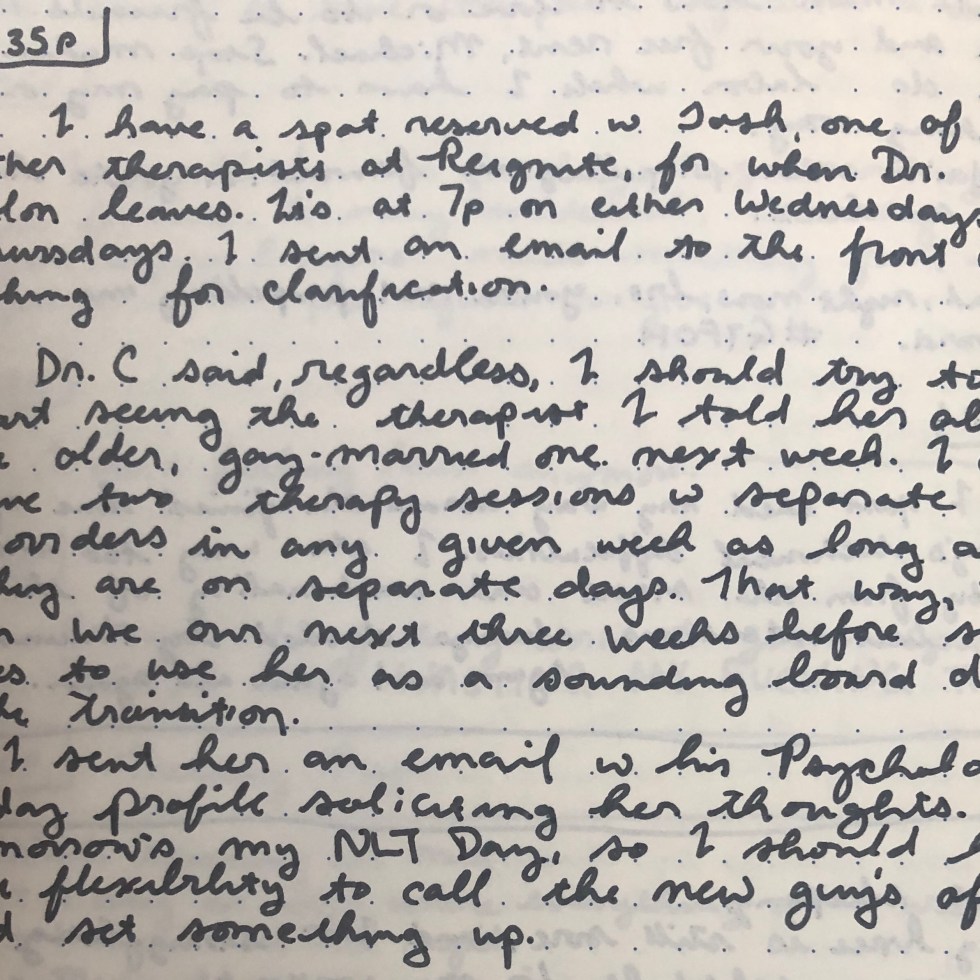 35p.
. I have a spot reserved w Josh, one of
ther therapists at Reignite, for when Dr.
lon leaves. It's at 7p on either Wednesdays
ursdays. I sent an email to the front
hing for clarification.
Dr. C said, regardless, I should try to
art seeing the therapist I told her ab
e older, gay-married one next week. I
ve two therapy sessions w separate
oviders in any given week as long a
hey are on separate days. That way,
n use our next three weeks before s
es to use her as a sounding board d
he transition.
I sent her an email w his Psycholo
day profile soliciting her thoughts.
morrow's my NLT Day, so I should h
e flexibility to call the new guy's of
d set something up.